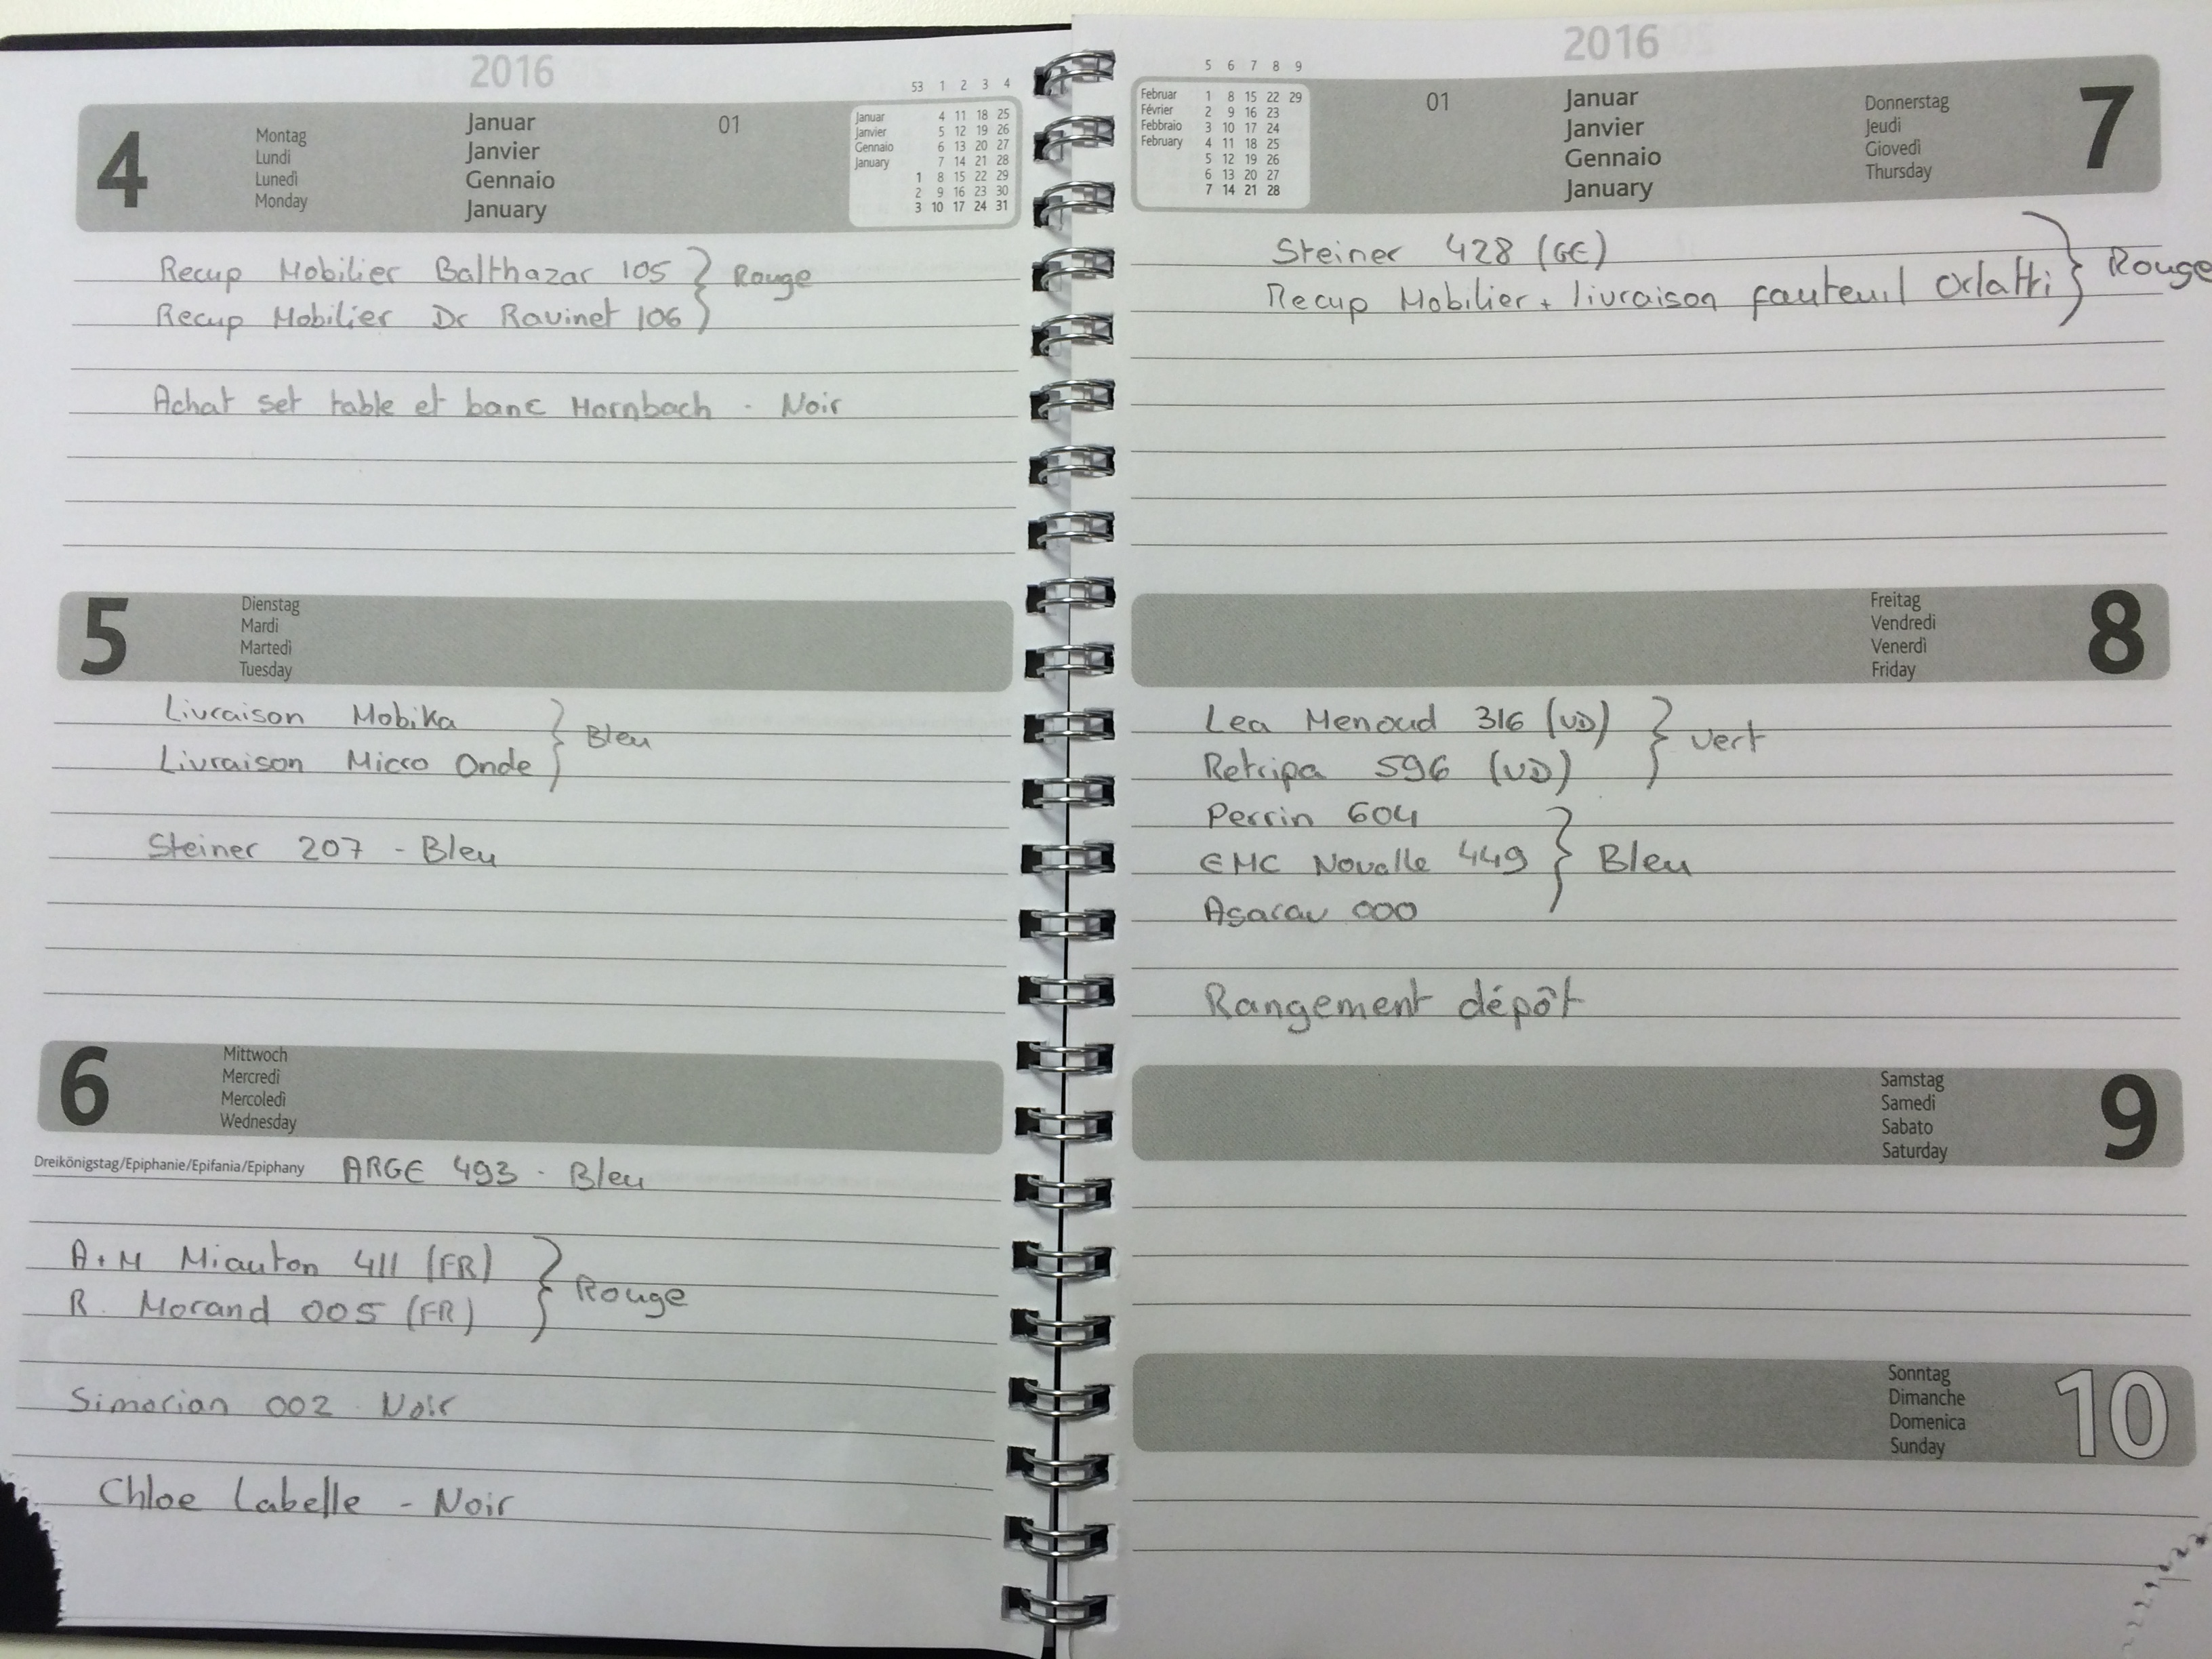 2016
4
Montag
Lundi
Lunedì
Monday
Januar
Janvier
Gennaio
January
01
53 1 2 3 4
Januar 4 11 18 25
Janvier 5 12 19 26
Gennaio 6 13 20 27
January 7 14 21 28
1 8 15 22 29
2 9 16 23 30
3 10 17 24 31
Recup Mobilier Balthazar 105
Recup Mobilier Dr Ravinet 106
Rouge
Achat set table et banc Hornbach - Noir
5
Dienstag
Mardi
Martedì
Tuesday
Livraison Mobika
Livraison Micro Onde
Bleu
Steiner 207 - Bleu
6
Mittwoch
Mercredi
Mercoledì
Wednesday
Dreikönigstag/Epiphanie/Epifania/Epiphany
ARGE 493 - Bleu
A+M Miauton 411 (FR)
R. Morand 005 (FR)
Rouge
Simorian 002 - Noir
Chloe Labelle - Noir
2016
5 6 7 8 9
Februar 1 8 15 22 29
Février 2 9 16 23
Febbraio 3 10 17 24
February 4 11 18 25
5 12 19 26
6 13 20 27
7 14 21 28
01
Januar
Janvier
Gennaio
January
Donnerstag
Jeudi
Giovedì
Thursday
7
Steiner 428 (GE)
Recup Mobilier + livraison fauteuil Orlatti
Rouge
Freitag
Vendredi
Venerdì
Friday
8
Lea Menoud 316 (VD)
Retripa 596 (VD)
Vert
Perrin 604
EMC Novalle 449
Asacav 000
Bleu
Rangement dépôt
Samstag
Samedi
Sabato
Saturday
9
Sonntag
Dimanche
Domenica
Sunday
10